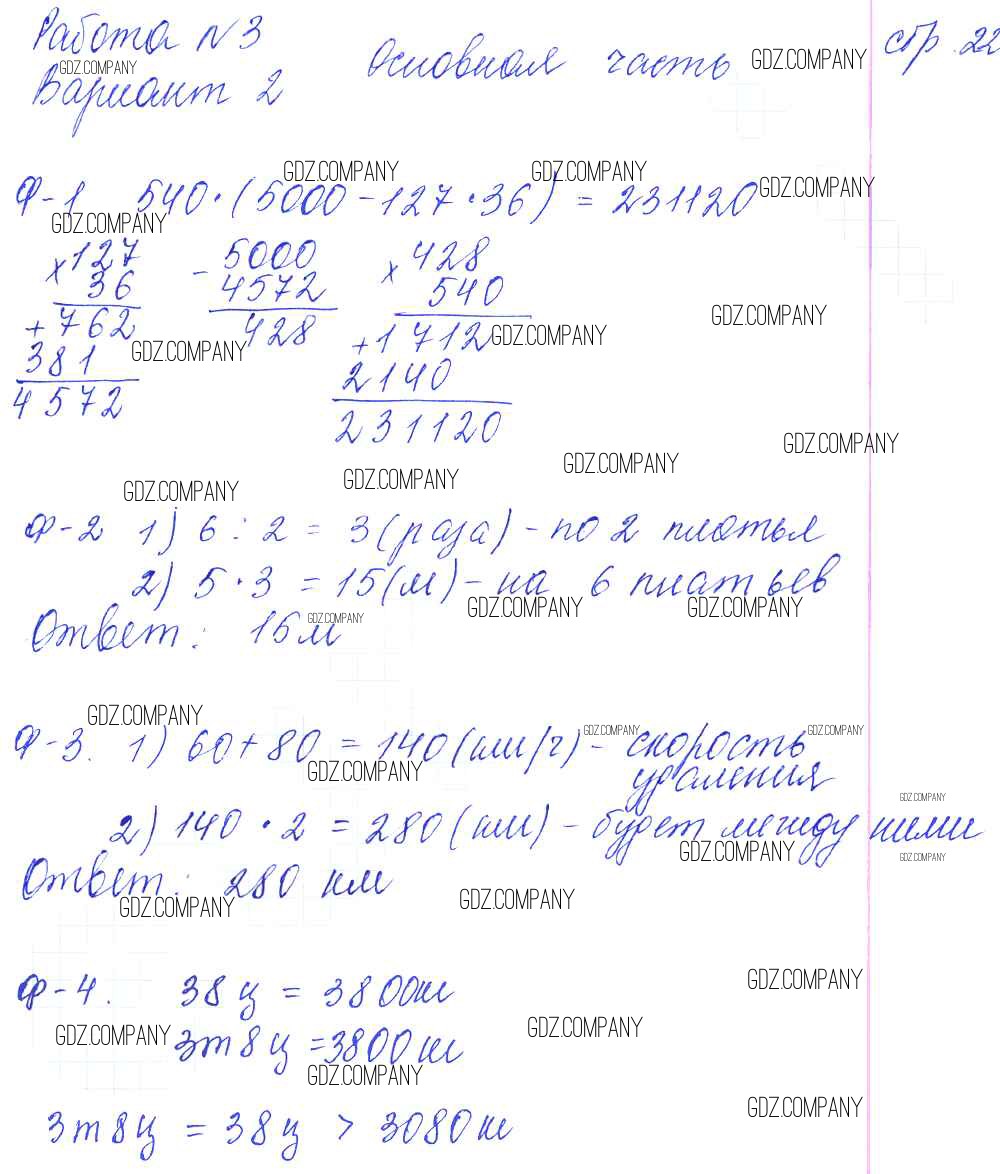 Работа №3 Основная часть стр. 22
Вариант 2
Ф-1 540·(5000-127·36) = 231120
×127 -5000 ×428
36 4572 540
+762 428 +1712
381 2140
4572 231120
Ф-2 1) 6:2 = 3 (раза) - по 2 платья
2) 5·3 = 15(м) - на 6 платьев
Ответ: 15 м
Ф-3. 1) 60+80 = 140 (км/ч) - скорость
удаления
2) 140·2 = 280 (км) - будет между ними
Ответ: 280 км
Ф-4. 38 ц = 3800 кг
3т 8ц = 3800 кг
3т 8ц = 38ц > 3080 кг
GDZ.COMPANY